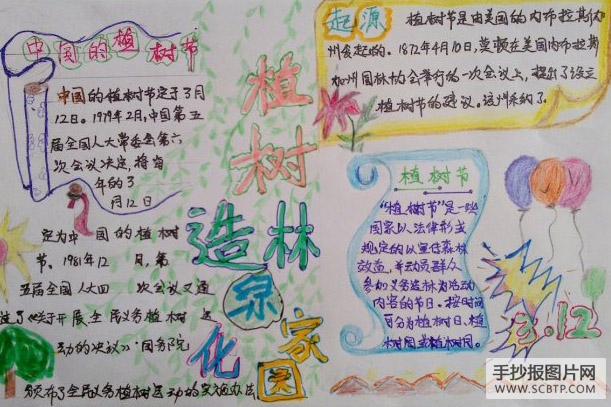 中国的植树节
中国的植树节定于3月
12日。1979年2月,中国第五
届全国人大常委会第六
次会议决定,将每
年的3
月12日
定为中国的植树
节。1981年12月,第
五届全国人大四次会议又通
过了《关于开展全民义务植树运
动的决议》。国务院
颁布了全民义务植树运动的实施办法。
植树
造林
绿
化家园
起源
植树节是由美国的内布拉斯
州发起的。1872年4月10日,莫顿在美国内布拉斯
加州园林协会举行的一次会议上,提出了设立
植树节的建议。该州采纳了。
植树节
"植树节"是一些
国家以法律形式
规定的以宣传森林
效益,并动员群众
参加义务造林为活动
内容的节日。按时间
可分为植树日、植
树周或植树月。
3.12
手抄报图片网
www.SCBTP.COM